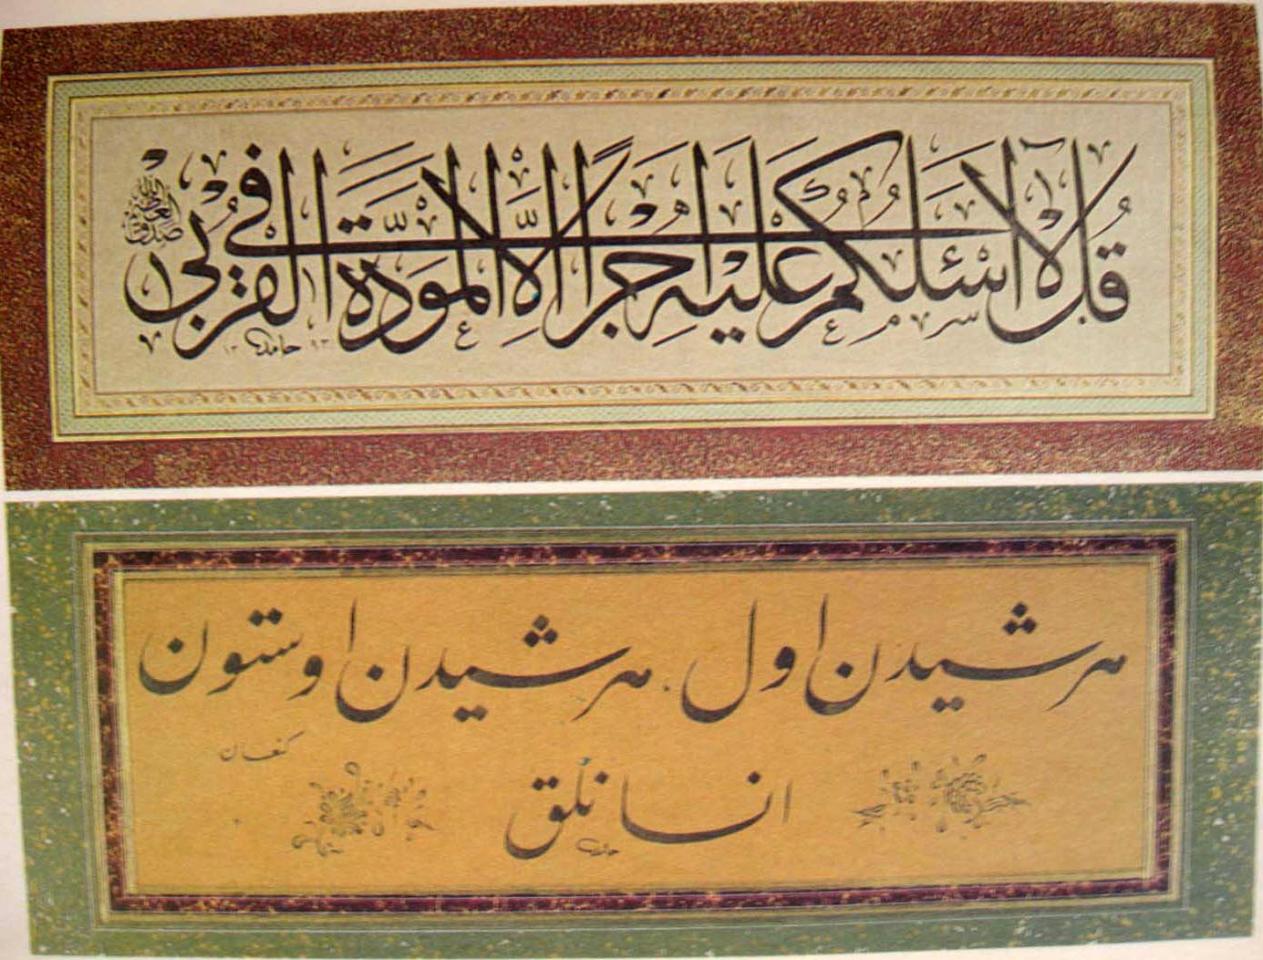 قُل لا اَسْئَلُكُمْ عَلَيْهِ اَجْرًا اِلَّا الْمَوَدَّةَ فِي الْقُرْبٰى
صدق الله العظيم
حامد
هر شيدن اول هر شيدن اوستون
كنعان
انسانلق
حامد